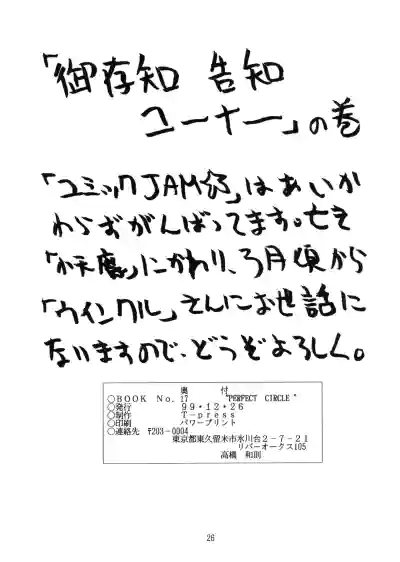 「御存知 告知
コーナー」の巻
「コミックJAM
」はあいか
わらずがんばってます。
「小天魔」にかわり、3月頃から
「ウインクル」さんにお世話に
ないますので、どうぞよろしく。
奥 付
○BOOK No. 17 "PERFECT CIRCLE"
○発行 99・12・26
○制作 T-press
○印刷 パワープリント
○連絡先 〒203-0004
東京都東久留米市氷川台2-7-21
リバーオークス105
高橋 和則
26